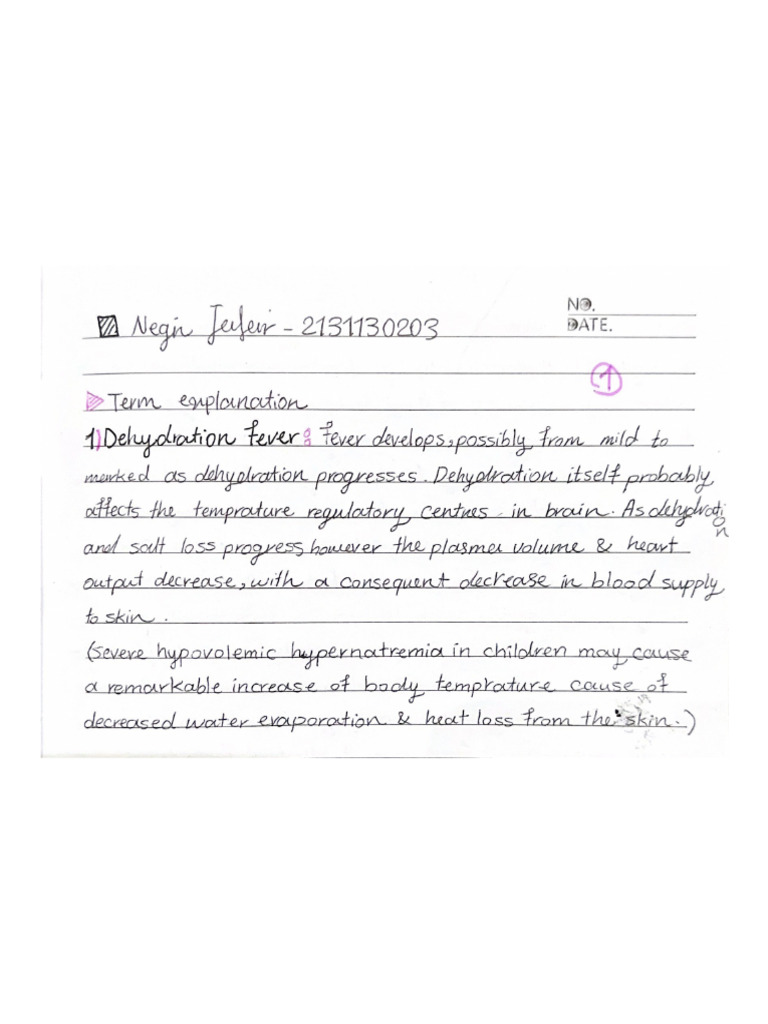 NO.
Negin Jafari - 2131130203
DATE.
1
Term explanation
1) Dehydration fever: fever develops, possibly from mild to
marked as dehydration progresses. Dehydration itself probably
affects the temprature regulatory centres in brain. As dehydration
and salt loss progress, however the plasma volume & heart
output decrease, with a consequent decrease in blood supply
to skin.
(severe hypovolemic hypernatremia in children may cause
a remarkable increase of body temprature cause of
decreased water evaporation & heat loss from the skin.)